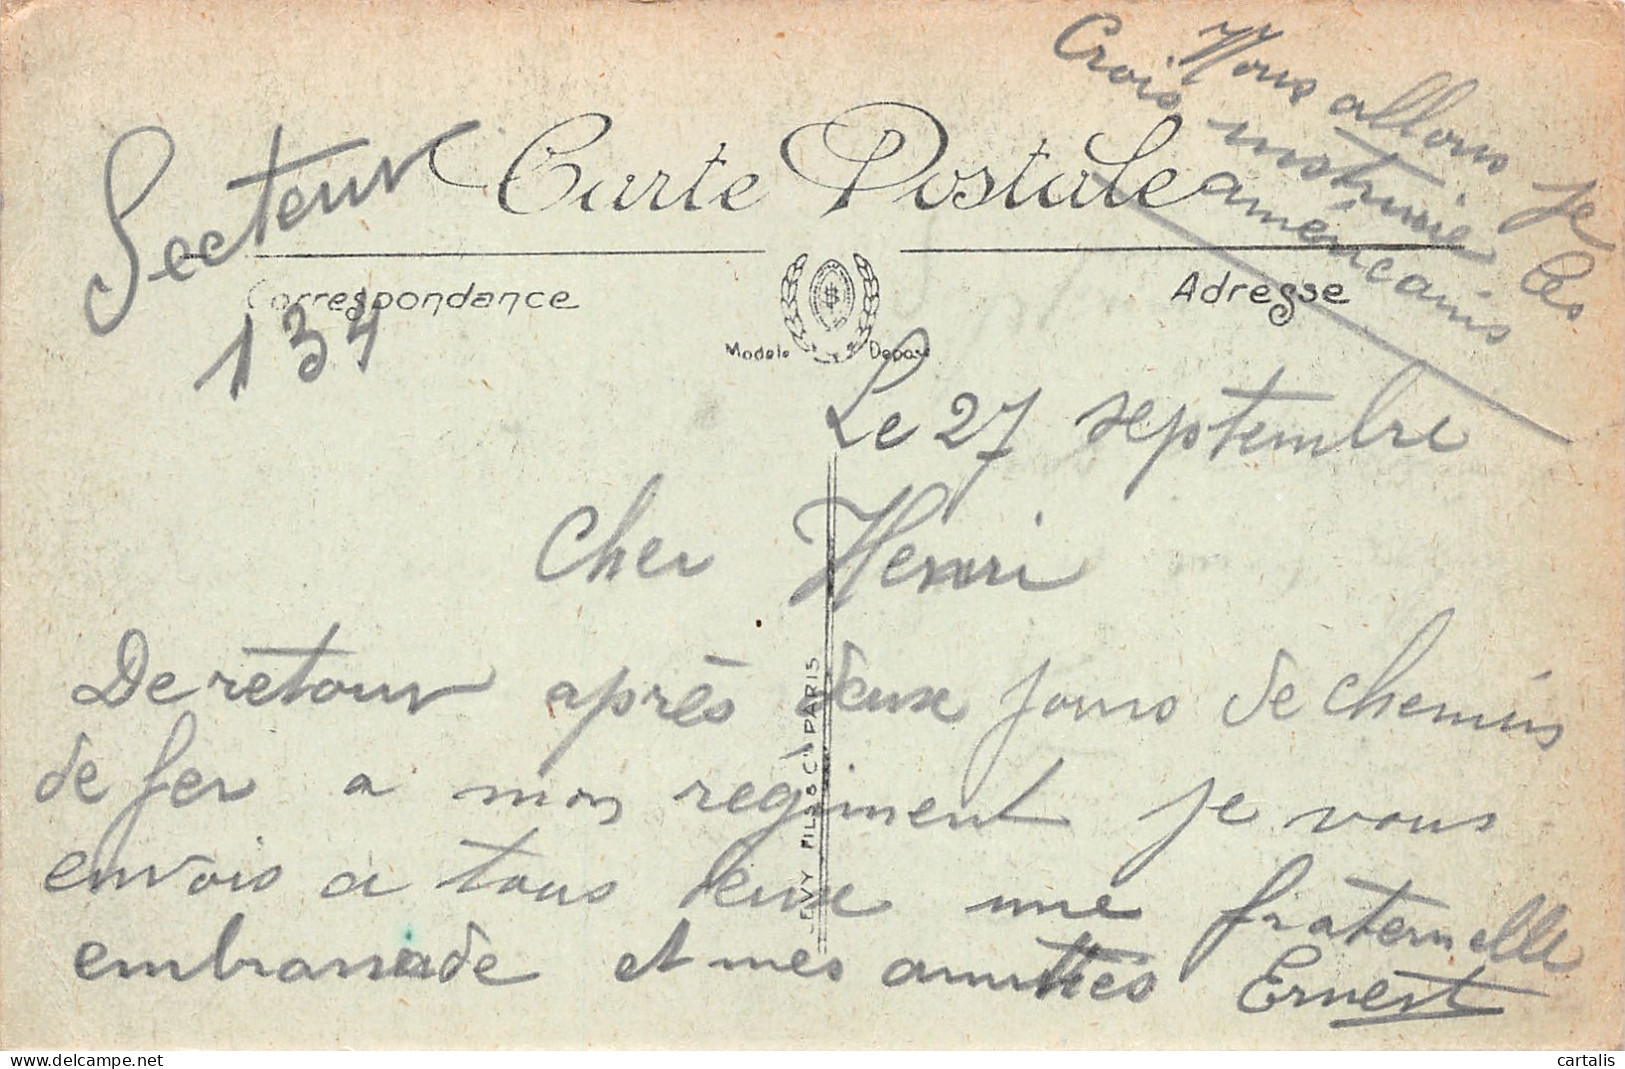 Nous allons je
Crois instruire les
américains
Secteur
134
Carte Postale
Correspondance
Adresse
Modele Deposé
Le 27 septembre
Cher Henri
De retour après deux jours de chemins
de fer a mon régiment je vous
envois a tous deux une fraternelle
embrassade et mes amitiés Ernest
LEVY FILS & Cie PARIS
cartalis